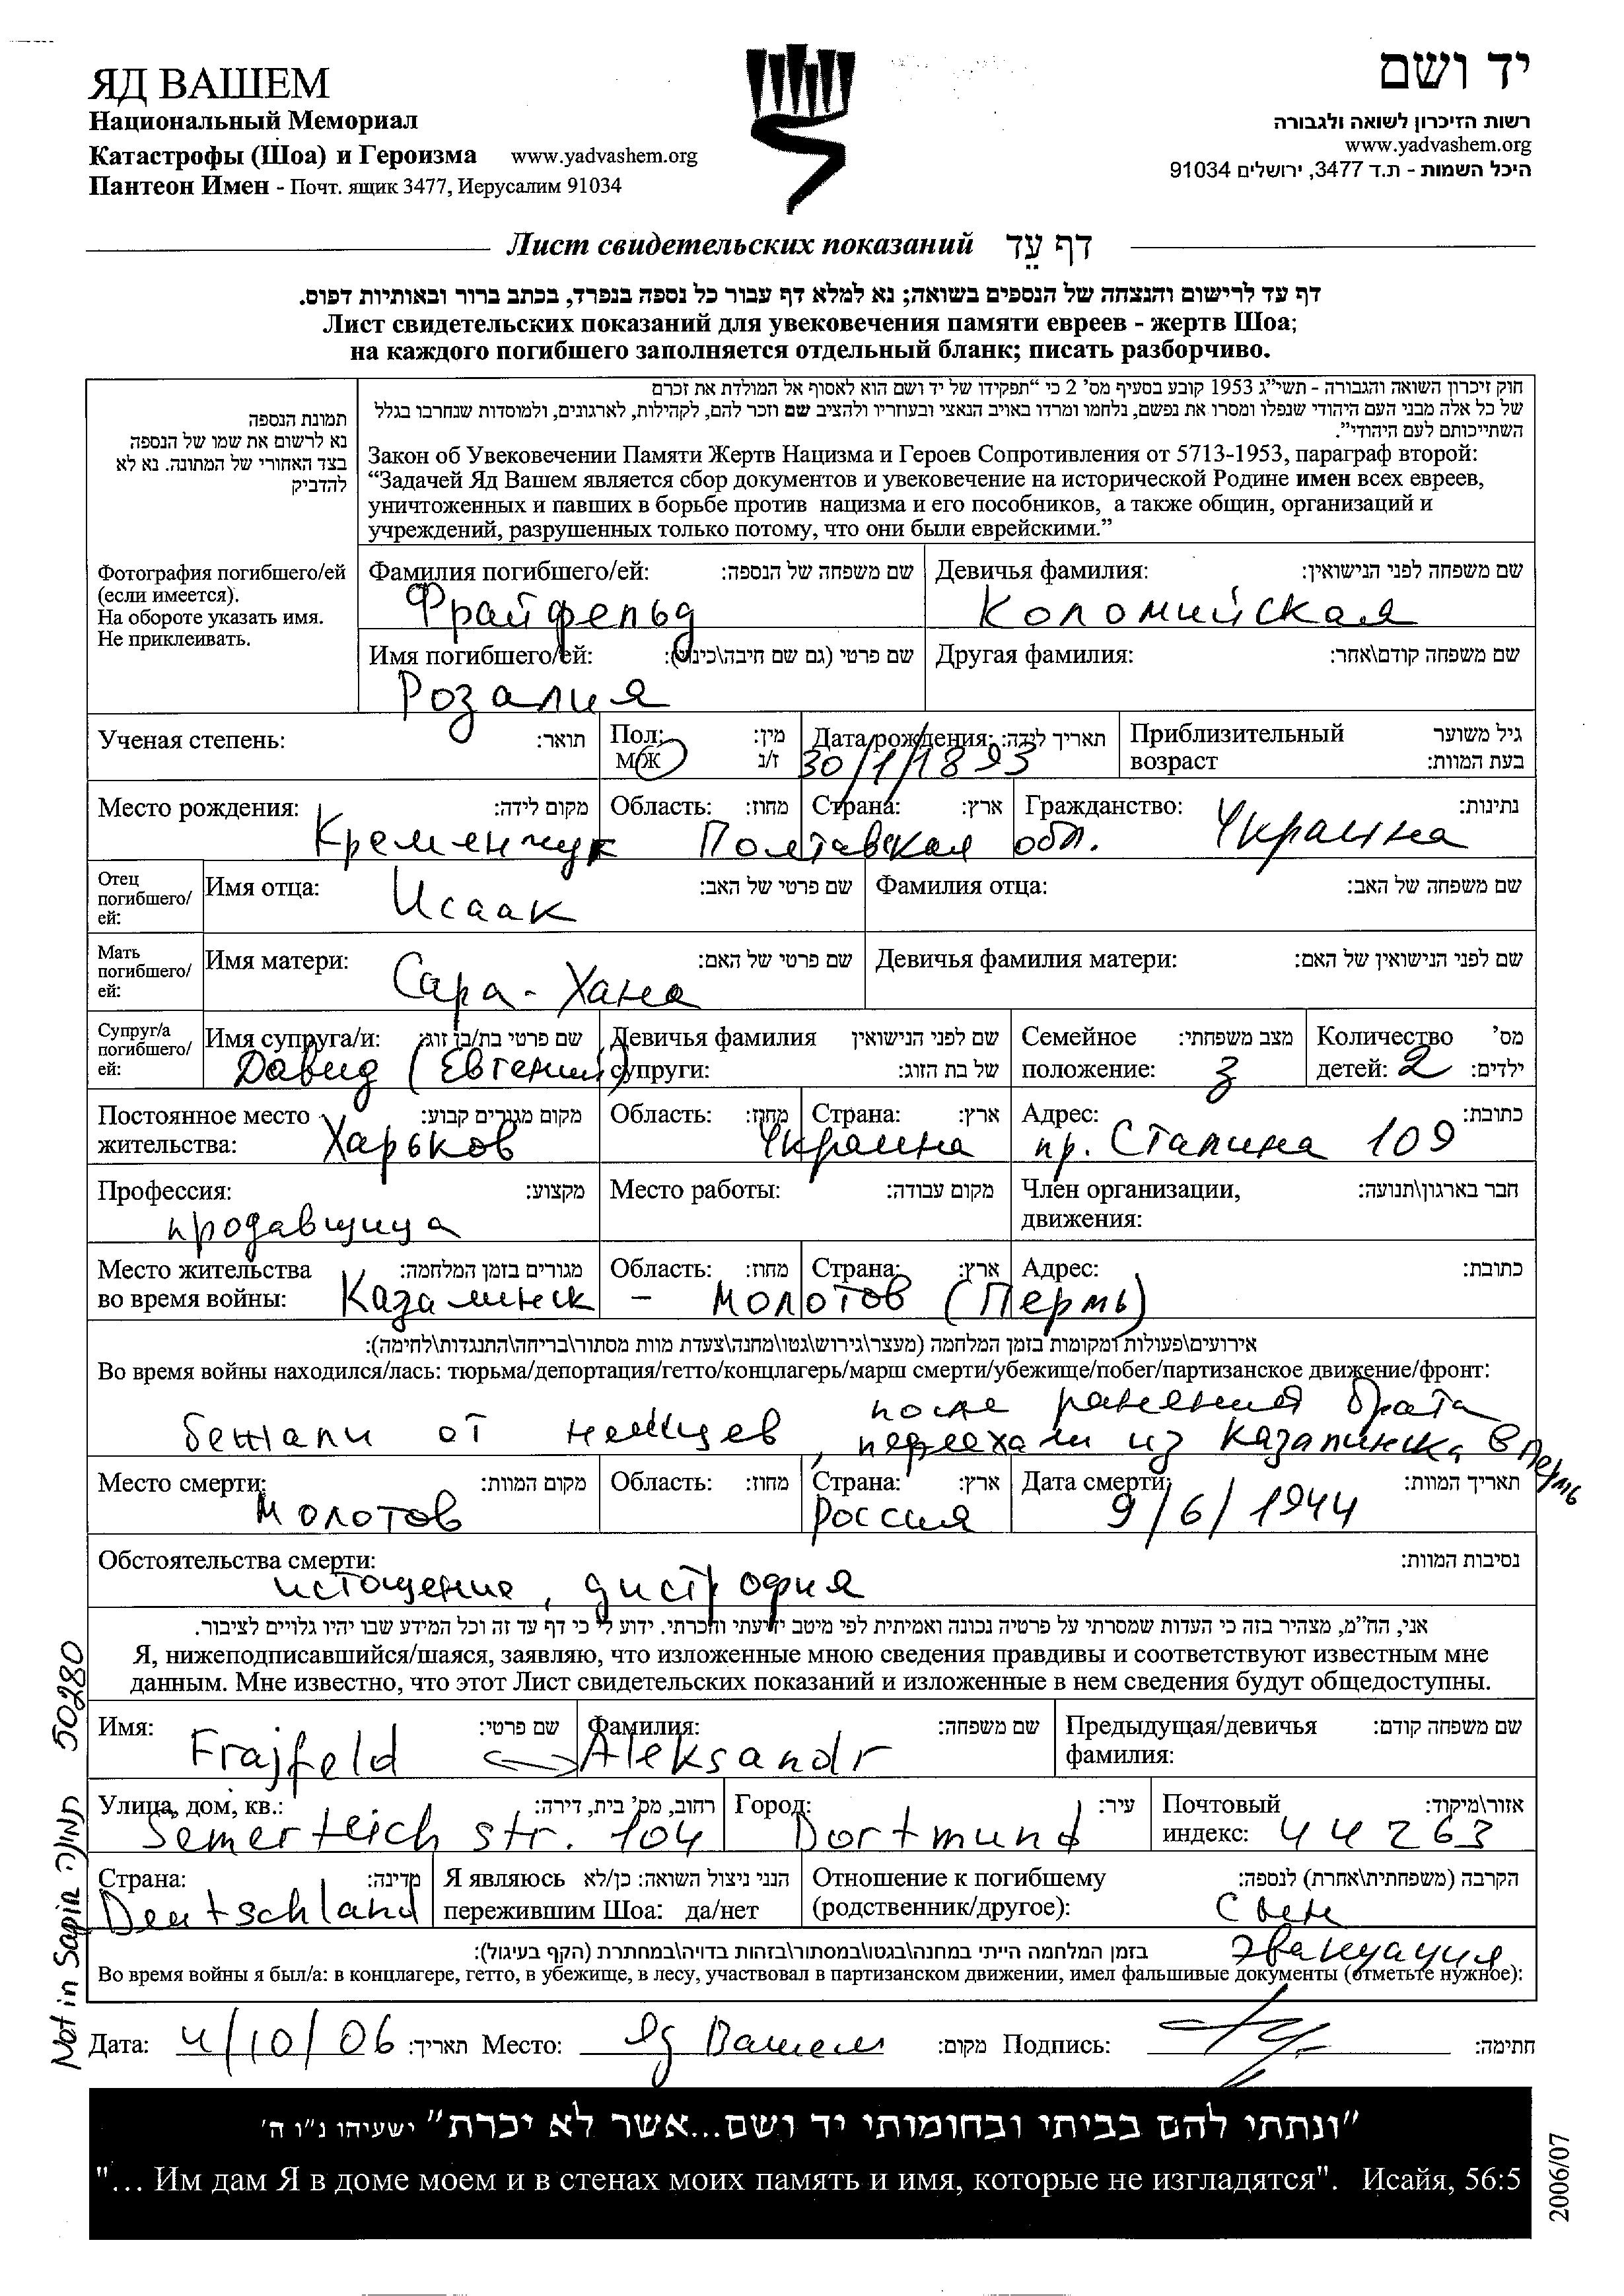 ЯД ВАШЕМ
יד ושם
Национальный Мемориал
Катастрофы (Шоа) и Героизма www.yadvashem.org
Пантеон Имен - Почт. ящик 3477, Иерусалим 91034
רשות הזיכרון לשואה ולגבורה
www.yadvashem.org
היכל השמות - ת.ד 3477, ירושלים 91034
Лист свидетельских показаний דף עֵד
דף עד לרישום והנצחה של הנספים בשואה; נא למלא דף עבור כל נספה בנפרד, בכתב ברור ובאותיות דפוס.
Лист свидетельских показаний для увековечения памяти евреев - жертв Шоа;
на каждого погибшего заполняется отдельный бланк; писать разборчиво.
תמונת הנספה
נא לרשום את שמו של הנספה
בצד האחורי של המתונה. נא לא
להדביק
חוק זיכרון השואה והגבורה - תשי״ג 1953 קובע בסעיף מס׳ 2 כי ״תפקידו של יד ושם הוא לאסוף אל המולדת את זכרם
של כל אלה מבני העם היהודי שנפלו ומסרו את נפשם, נלחמו ומרדו באויב הנאצי ובעוזריו ולהציב שם וזכר להם, לקהילות, לארגונים, ולמוסדות שנחרבו בגלל
השתייכותם לעם היהודי״.
Закон об Увековечении Памяти Жертв Нацизма и Героев Сопротивления от 5713-1953, параграф второй:
“Задачей Яд Вашем является сбор документов и увековечение на исторической Родине имен всех евреев,
уничтоженных и павших в борьбе против нацизма и его пособников, а также общин, организаций и
учреждений, разрушенных только потому, что они были еврейскими.”
Фотография погибшего/ей
(если имеется).
На обороте указать имя.
Не приклеивать.
Фамилия погибшего/ей: שם משפחה של הנספה: Девичья фамилия: שם משפחה לפני הנישואין:
Фрайфельд Коломийская
Имя погибшего/ей: שם פרטי (גם שם חיבה\כינוי): Другая фамилия: שם משפחה קודם\אחר:
Розалия
Ученая степень: תואר: Пол: מין: Дата рождения: תאריך לידה: Приблизительный גיל משוער
М/Ж ז/נ 30/1/1893 возраст בעת המוות:
Место рождения: מקום לידה: Область: מחוז: Страна: ארץ: Гражданство: נתינות:
Кременчук Полтавская обл. Украина
Отец погибшего/ей: Имя отца: Исаак שם פרטי של האב: Фамилия отца: שם משפחה של האב:
Мать погибшего/ей: Имя матери: Сара-Хана שם פרטי של האם: Девичья фамилия матери: שם לפני הנישואין של האם:
Супруг/а погибшего/ей: Имя супруга/и: שם פרטי בת/בן זוג: Девичья фамилия שם לפני הנישואין Семейное מצב משפחתי: Количество מס׳
Давид (Евгений) супруги: של בת הזוג: положение: з детей: 2 ילדים:
Постоянное место מקום מגורים קבוע: Область: מחוז: Страна: ארץ: Адрес: כתובת:
жительства: Харьков Украина пр. Сталина 109
Профессия: מקצוע: Место работы: מקום עבודה: Член организации, חבר בארגון\תנועה:
продавщица движения:
Место жительства מגורים בזמן המלחמה: Область: מחוז: Страна: ארץ: Адрес: כתובת:
во время войны: Казалинск - Молотов (Пермь)
אירועים\פעולות ומקומות בזמן המלחמה (מעצר\גירוש\גטו\מחנה\צעדת מוות מסתור\בריחה\התנגדות\לחימה):
Во время войны находился/лась: тюрьма/депортация/гетто/концлагерь/марш смерти/убежище/побег/партизанское движение/фронт:
бежали от немцев, после ранения брата
переехали из Казалинска в Пермь
Место смерти: מקום המוות: Область: מחוז: Страна: ארץ: Дата смерти: תאריך המוות:
Молотов Россия 9/6/1944
Обстоятельства смерти: נסיבות המוות:
истощение, дистрофия
אני, הח״מ, מצהיר בזה כי העדות שמסרתי על פרטיה נכונה ואמיתית לפי מיטב ידיעתי והכרתי. ידוע לי כי דף עד זה וכל המידע שבו יהיו גלויים לציבור.
Я, нижеподписавшийся/шаяся, заявляю, что изложенные мною сведения правдивы и соответствуют известным мне
данным. Мне известно, что этот Лист свидетельских показаний и изложенные в нем сведения будут общедоступны.
Имя: שם פרטי: Фамилия: שם משפחה: Предыдущая/девичья שם משפחה קודם:
Frajfeld Aleksandr фамилия:
Улица, дом, кв.: רחוב, מס׳ בית, דירה: Город: עיר: Почтовый אזור\מיקוד:
Semerteich str. 104 Dortmund индекс: 44263
Страна: מדינה: Я являюсь הנני ניצול השואה: כן/לא Отношение к погибшему הקרבה (משפחתית\אחרת) לנספה:
Deutschland пережившим Шоа: да/нет (родственник/другое): Сын
בזמן המלחמה הייתי במחנה\בגטו\במסתור\בזהות בדויה\במחתרת (הקף בעיגול): эвакуация
Во время войны я был/а: в концлагере, гетто, в убежище, в лесу, участвовал в партизанском движении, имел фальшивые документы (отметьте нужное):
Дата: 4/10/06 תאריך: Место: Яд Вашем מקום: Подпись: חתימה:
Not in Sapir תמונה 50280
״ונתתי להם בביתי ובחומותי יד ושם...אשר לא יכרת״ ישעיהו נ״ו ה׳
"... Им дам Я в доме моем и в стенах моих память и имя, которые не изгладятся". Исайя, 56:5
2006/07